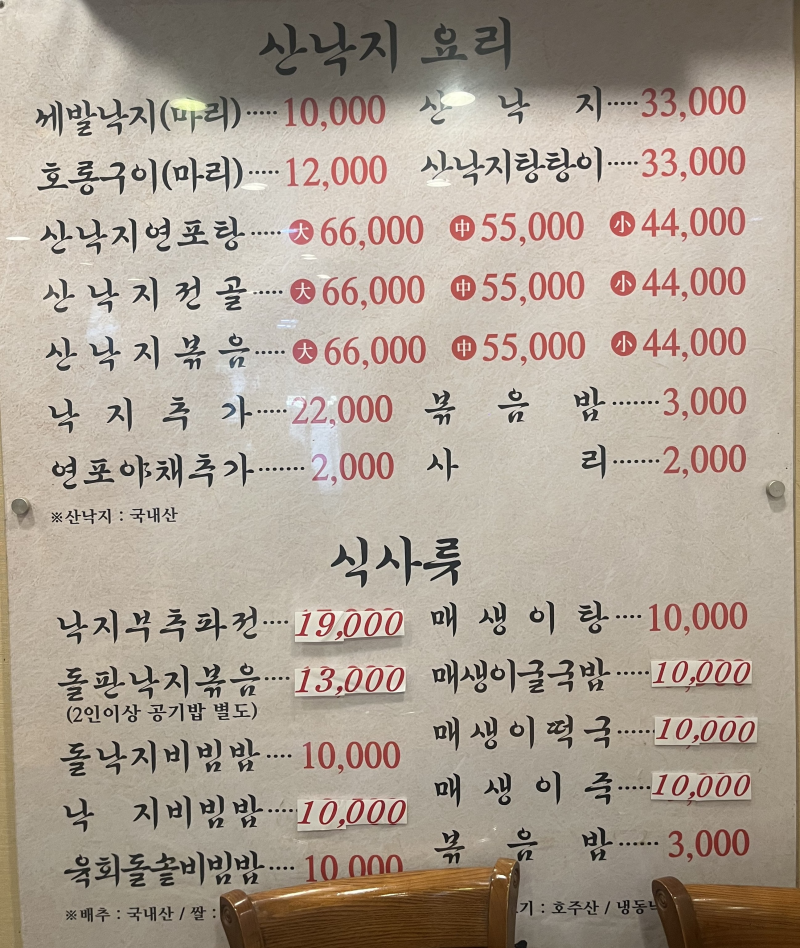 산낙지 요리
세발낙지(마리)·····10,000 산 낙 지·····33,000
호롱구이(마리)·····12,000 산낙지탕탕이·····33,000
산낙지연포탕·····大 66,000 中 55,000 小 44,000
산낙지전골·····大 66,000 中 55,000 小 44,000
산낙지볶음·····大 66,000 中 55,000 小 44,000
낙지추가·····22,000 볶 음 밥·······3,000
연포야채추가·······2,000 사 리·······2,000
※산낙지 : 국내산
식사류
낙지부추파전····19,000 매생이탕····10,000
돌판낙지볶음····13,000 매생이굴국밥·····10,000
(2인이상 공기밥 별도)
매생이떡국·····10,000
돌낙지비빔밥····10,000
매생이죽·····10,000
낙 지비빔밥·····10,000
볶 음 밥······3,000
육회돌솥비빔밥····10,000
※배추 : 국내산 / 쌀 : 기 : 호주산 / 냉동낙